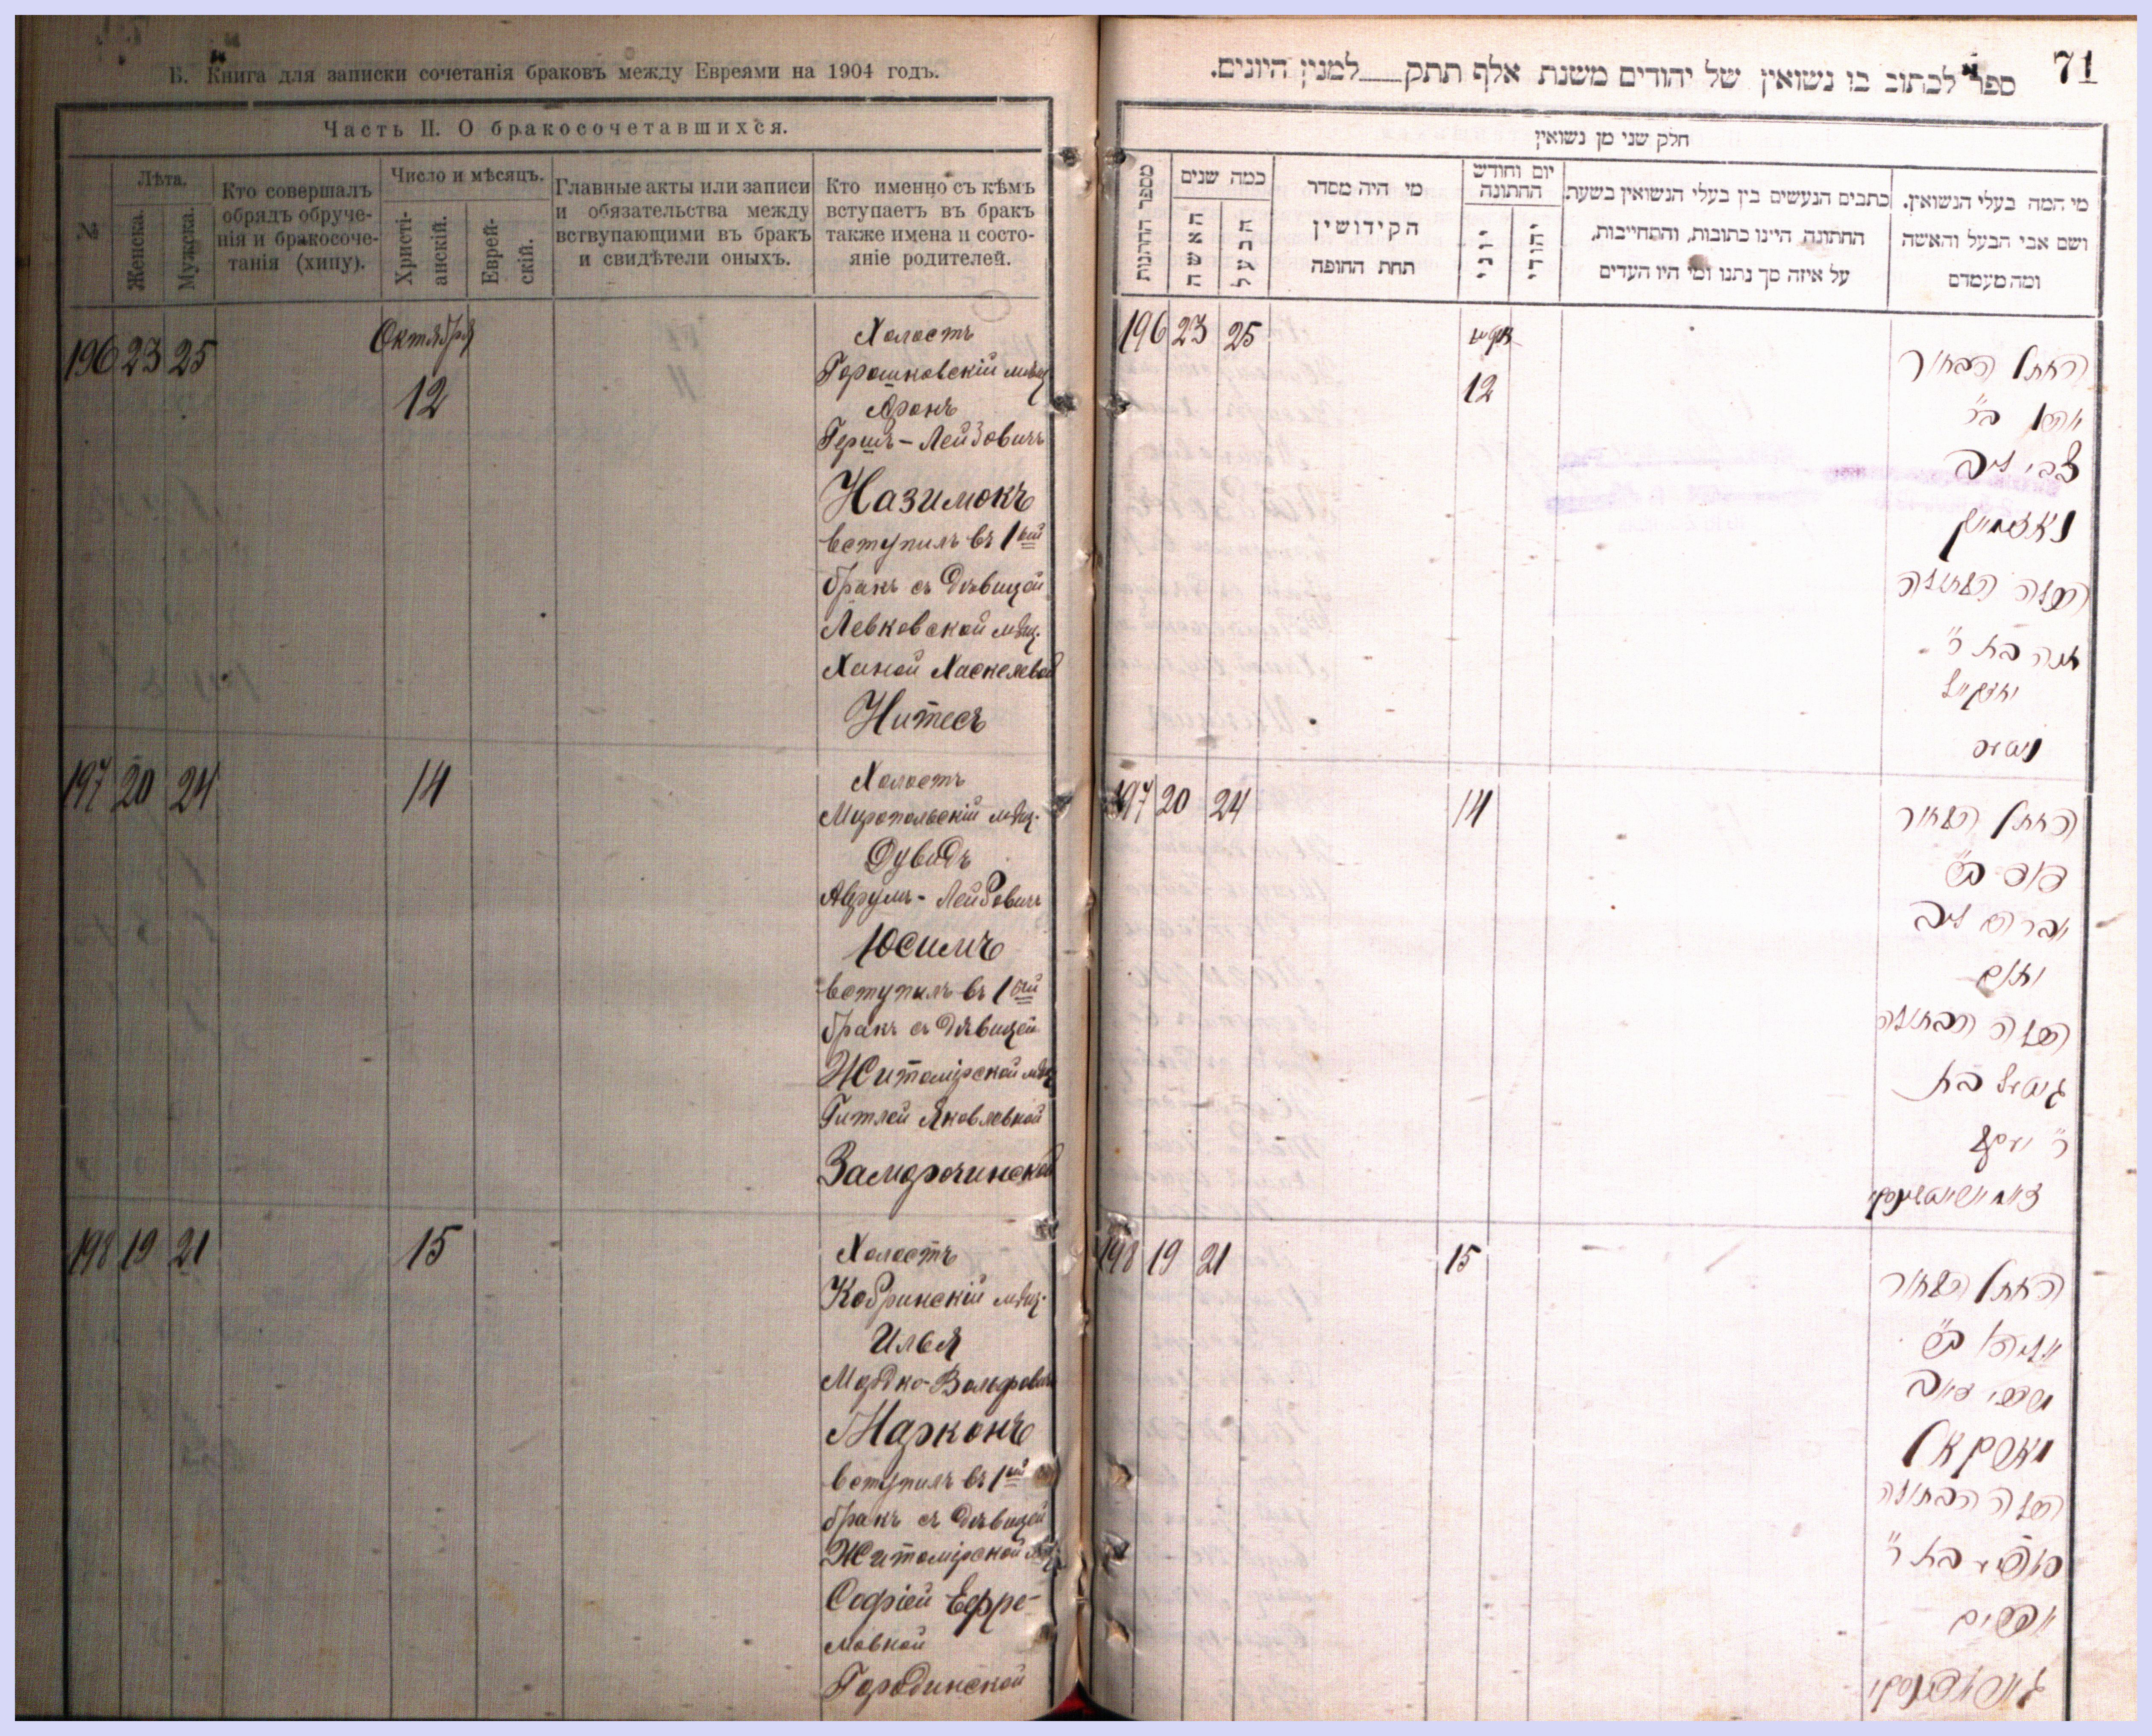 Б. Книга для записки сочетанія браковъ между Евреями на 1904 годъ.
Часть II. О бракосочетавшихся.
№
Лѣта.
Женска.
Мужска.
Кто совершалъ
обрядъ обруче-
нія и бракосоче-
танія (хипу).
Число и мѣсяцъ.
Христі-
анскій.
Еврей-
скій.
Главные акты или записи
и обязательства между
вствупающими въ бракъ
и свидѣтели оныхъ.
Кто именно съ кѣмъ
вступаетъ въ бракъ
также имена и состо-
яніе родителей.
196 23 25
Октября
12
Холостъ
Горошковскій мѣщ
Аронъ
Гершъ-Лейзовичъ
Назимокъ
вступилъ въ 1ый
бракъ съ дѣвицей
Левковской мѣщ.
Ханой Хаскелевой
Нитесъ
197 20 24
14
Холостъ
Миропольскій мѣщ.
Дувидъ
Аврумъ-Лейбовичъ
Юсимъ
вступилъ въ 1ый
бракъ съ дѣвицей
Житомірской мѣщ
Гитлей Яковлевной
198 19 21
15
Холостъ
Кобринскій мѣщ.
Илья
Мордко-Вольфовичъ
Марконъ
вступилъ въ 1ый
бракъ съ дѣвицей
Житомірской
Софіей Ефре-
мовной
Городинской
71
ספר לכתוב בו נשואין של יהודים משנת אלף תתק למנין היונים.
חלק שני מן נשואין
מספר החתונות
כמה שנים
האשה
הבעל
מי היה מסדר
הקידושין
תחת החופה
יום וחודש
החתונה
יוני
יהודי
כתבים הנעשים בין בעלי הנשואין בשעת
החתונה היינו כתובות, והתחייבות,
על איזה סך נתנו ומי היו העדים
מי המה בעלי הנשואין.
ושם אבי הבעל והאשה
ומה מעמדם
196 23 25
12
החתן הבחור
אהרן ב״ר
צבי ליב
הכלה הבתולה
חנה בת ר״
יחזקיל
197 20 24
14
החתן הבחור
דוד ב״ר
אברהם ליב
הכלה הבתולה
גיטל בת
ר״ יעקב
198 19 21
15
החתן הבחור
אליהו ב״ר
מרדכי זאב
מארקאן
הכלה הבתולה
סופיע בת ר״
אפרים